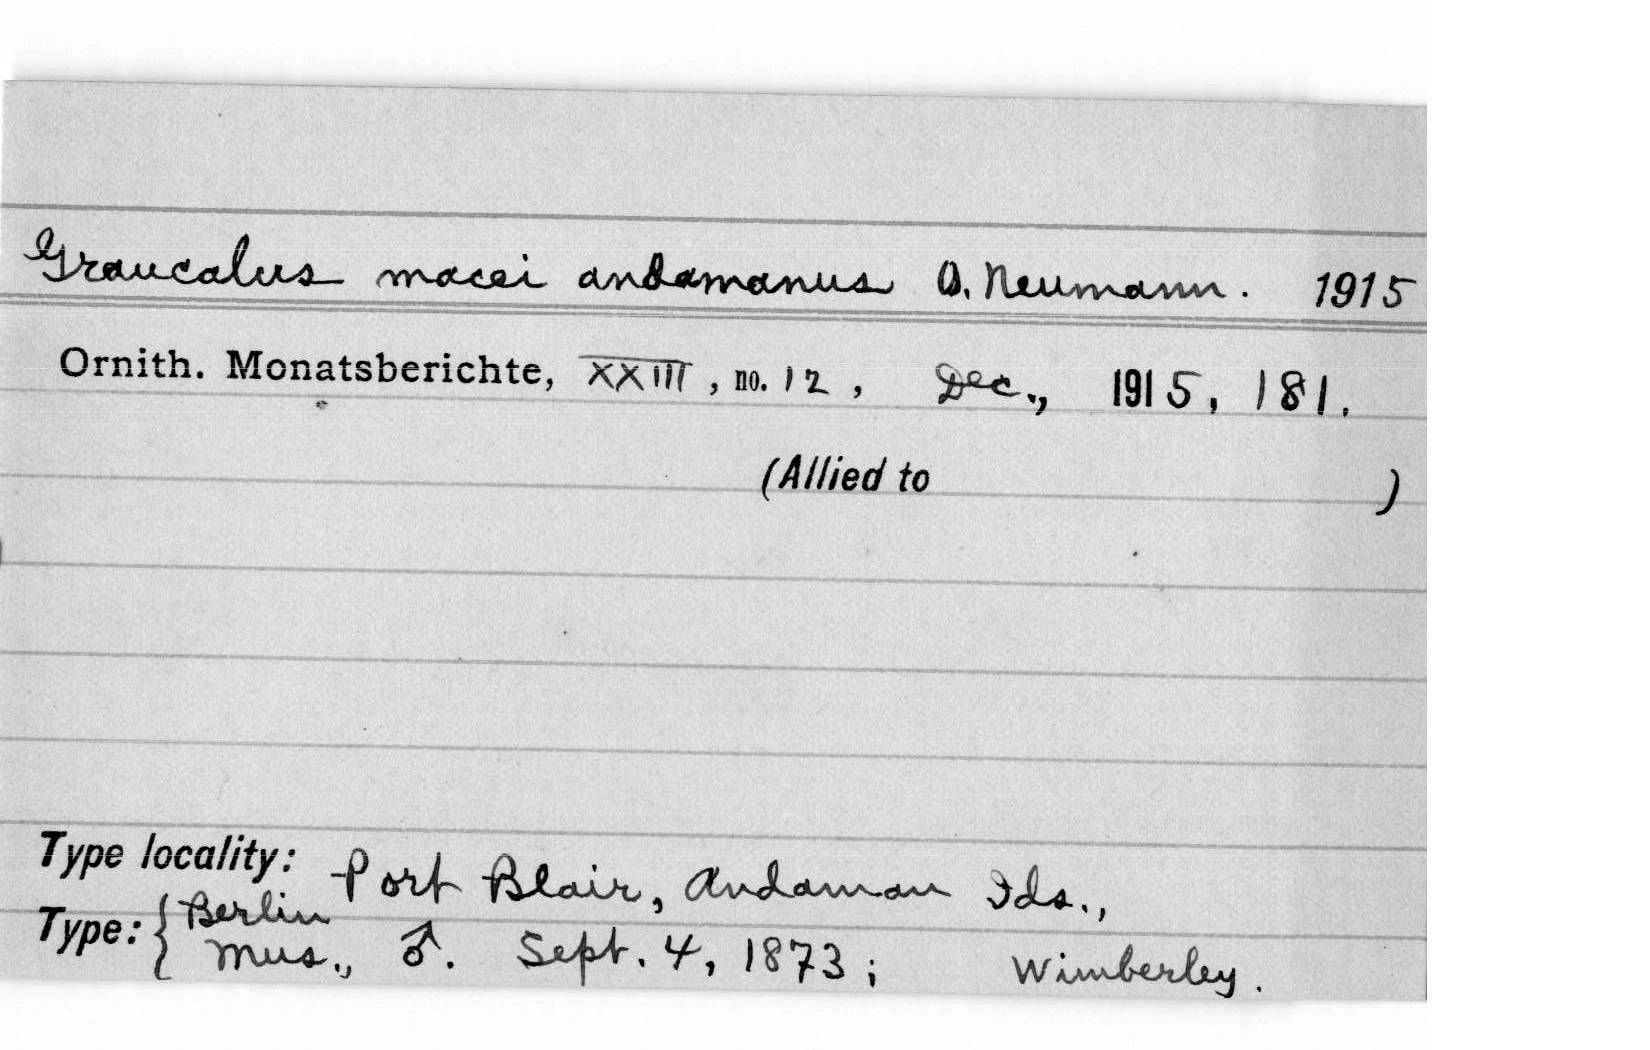 Graucalus macei andamanus O. Neumann. 1915
Ornith. Monatsberichte, XXIII, no. 12, Dec., 1915, 181.
(Allied to )
Type locality: Port Blair, Andaman Ids.,
Type: { Berlin
Mus., ♂. Sept. 4, 1873; Wimberley.